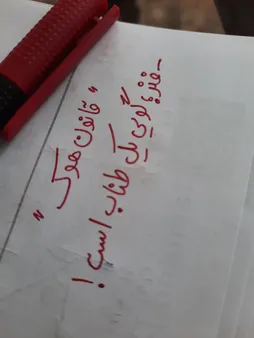 " قانون هوک "
- فنر، گویی یک طناب است !